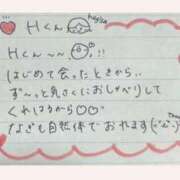 Hくん
Hくん〜〜
はじめて会ったときから
ず〜っと気さくにおしゃべりして
くれはるから♡♡
なぎも自然体でおれます